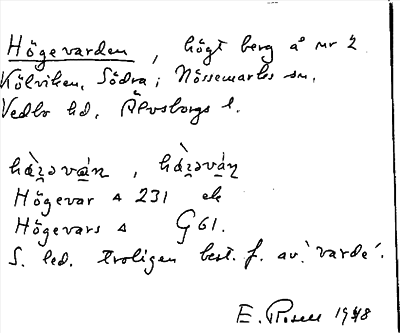 Högevarden, högt berg å nr 2
Kölviken, Södra; Nössemarks sn,
Vedbo hd, Älvsborgs l.
hàʒəván, hàʒəván
Högevar ▵ 231 ek
Högevars ▵ G 61.
S. led. troligen best. f. av 'varde'.
E. Rosell 1948